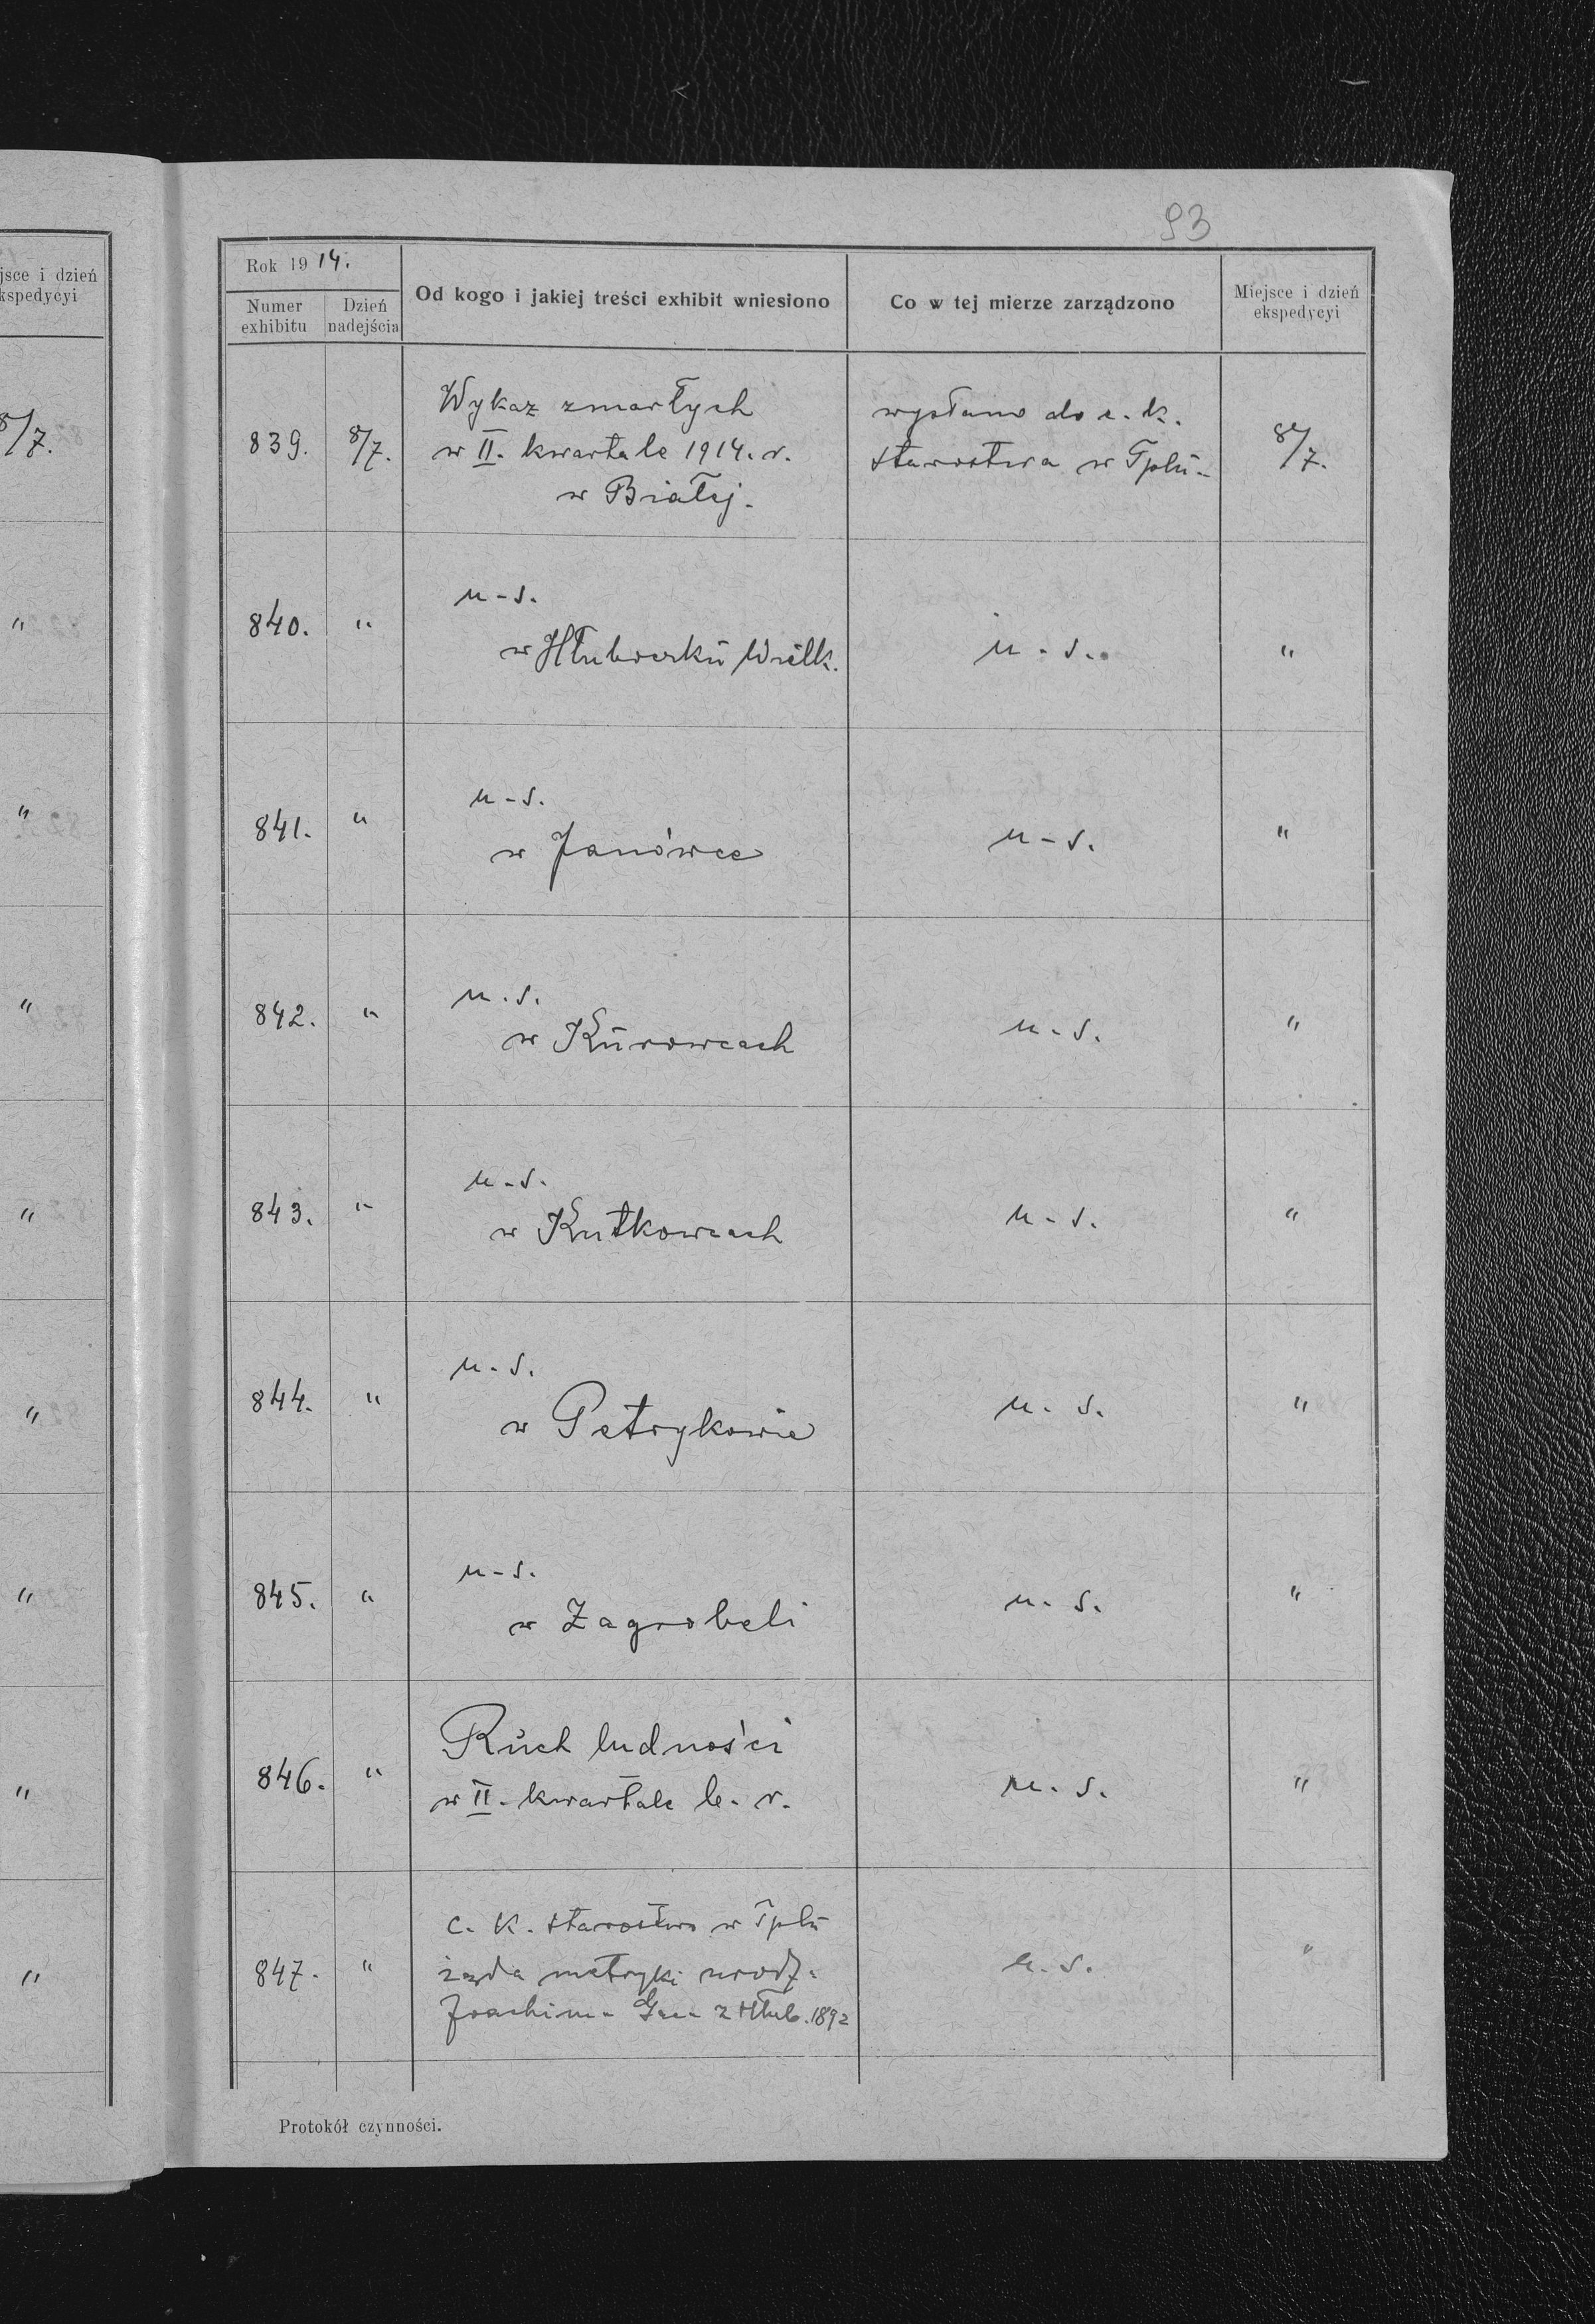 93
jsce i dzień
kspedycyi
8/7.
"
"
"
"
"
"
"
"
Rok 1914.
Numer exhibitu
Dzień nadejścia
Od kogo i jakiej treści exhibit wniesiono
Co w tej mierze zarządzono
Miejsce i dzień ekspedycyi
839. 8/7.
Wykaz zmarłych
w II. kwartale 1914. r.
w Białej.
wysłano do c. k.
starostwa w Tplu.
8/7.
840. "
u-s.
w Hłuboczku Wielk.
u-s.
"
841. "
u-s.
w Janówce
u-s.
"
842. "
u.s.
w Kurowcach
u-s.
"
843. "
u-s.
w Kutkowcach
u-s.
"
844. "
u-s.
w Petrykowie
u-s.
"
845. "
u-s.
w Zagrobeli
u-s.
"
846. "
Ruch ludności
w II. kwartale b. r.
u-s.
"
847. "
c. k. starostwo w Tplu
żąda metryki urodz.
Joachima z Hłub. 1892
u.s.
"
Protokół czynności.